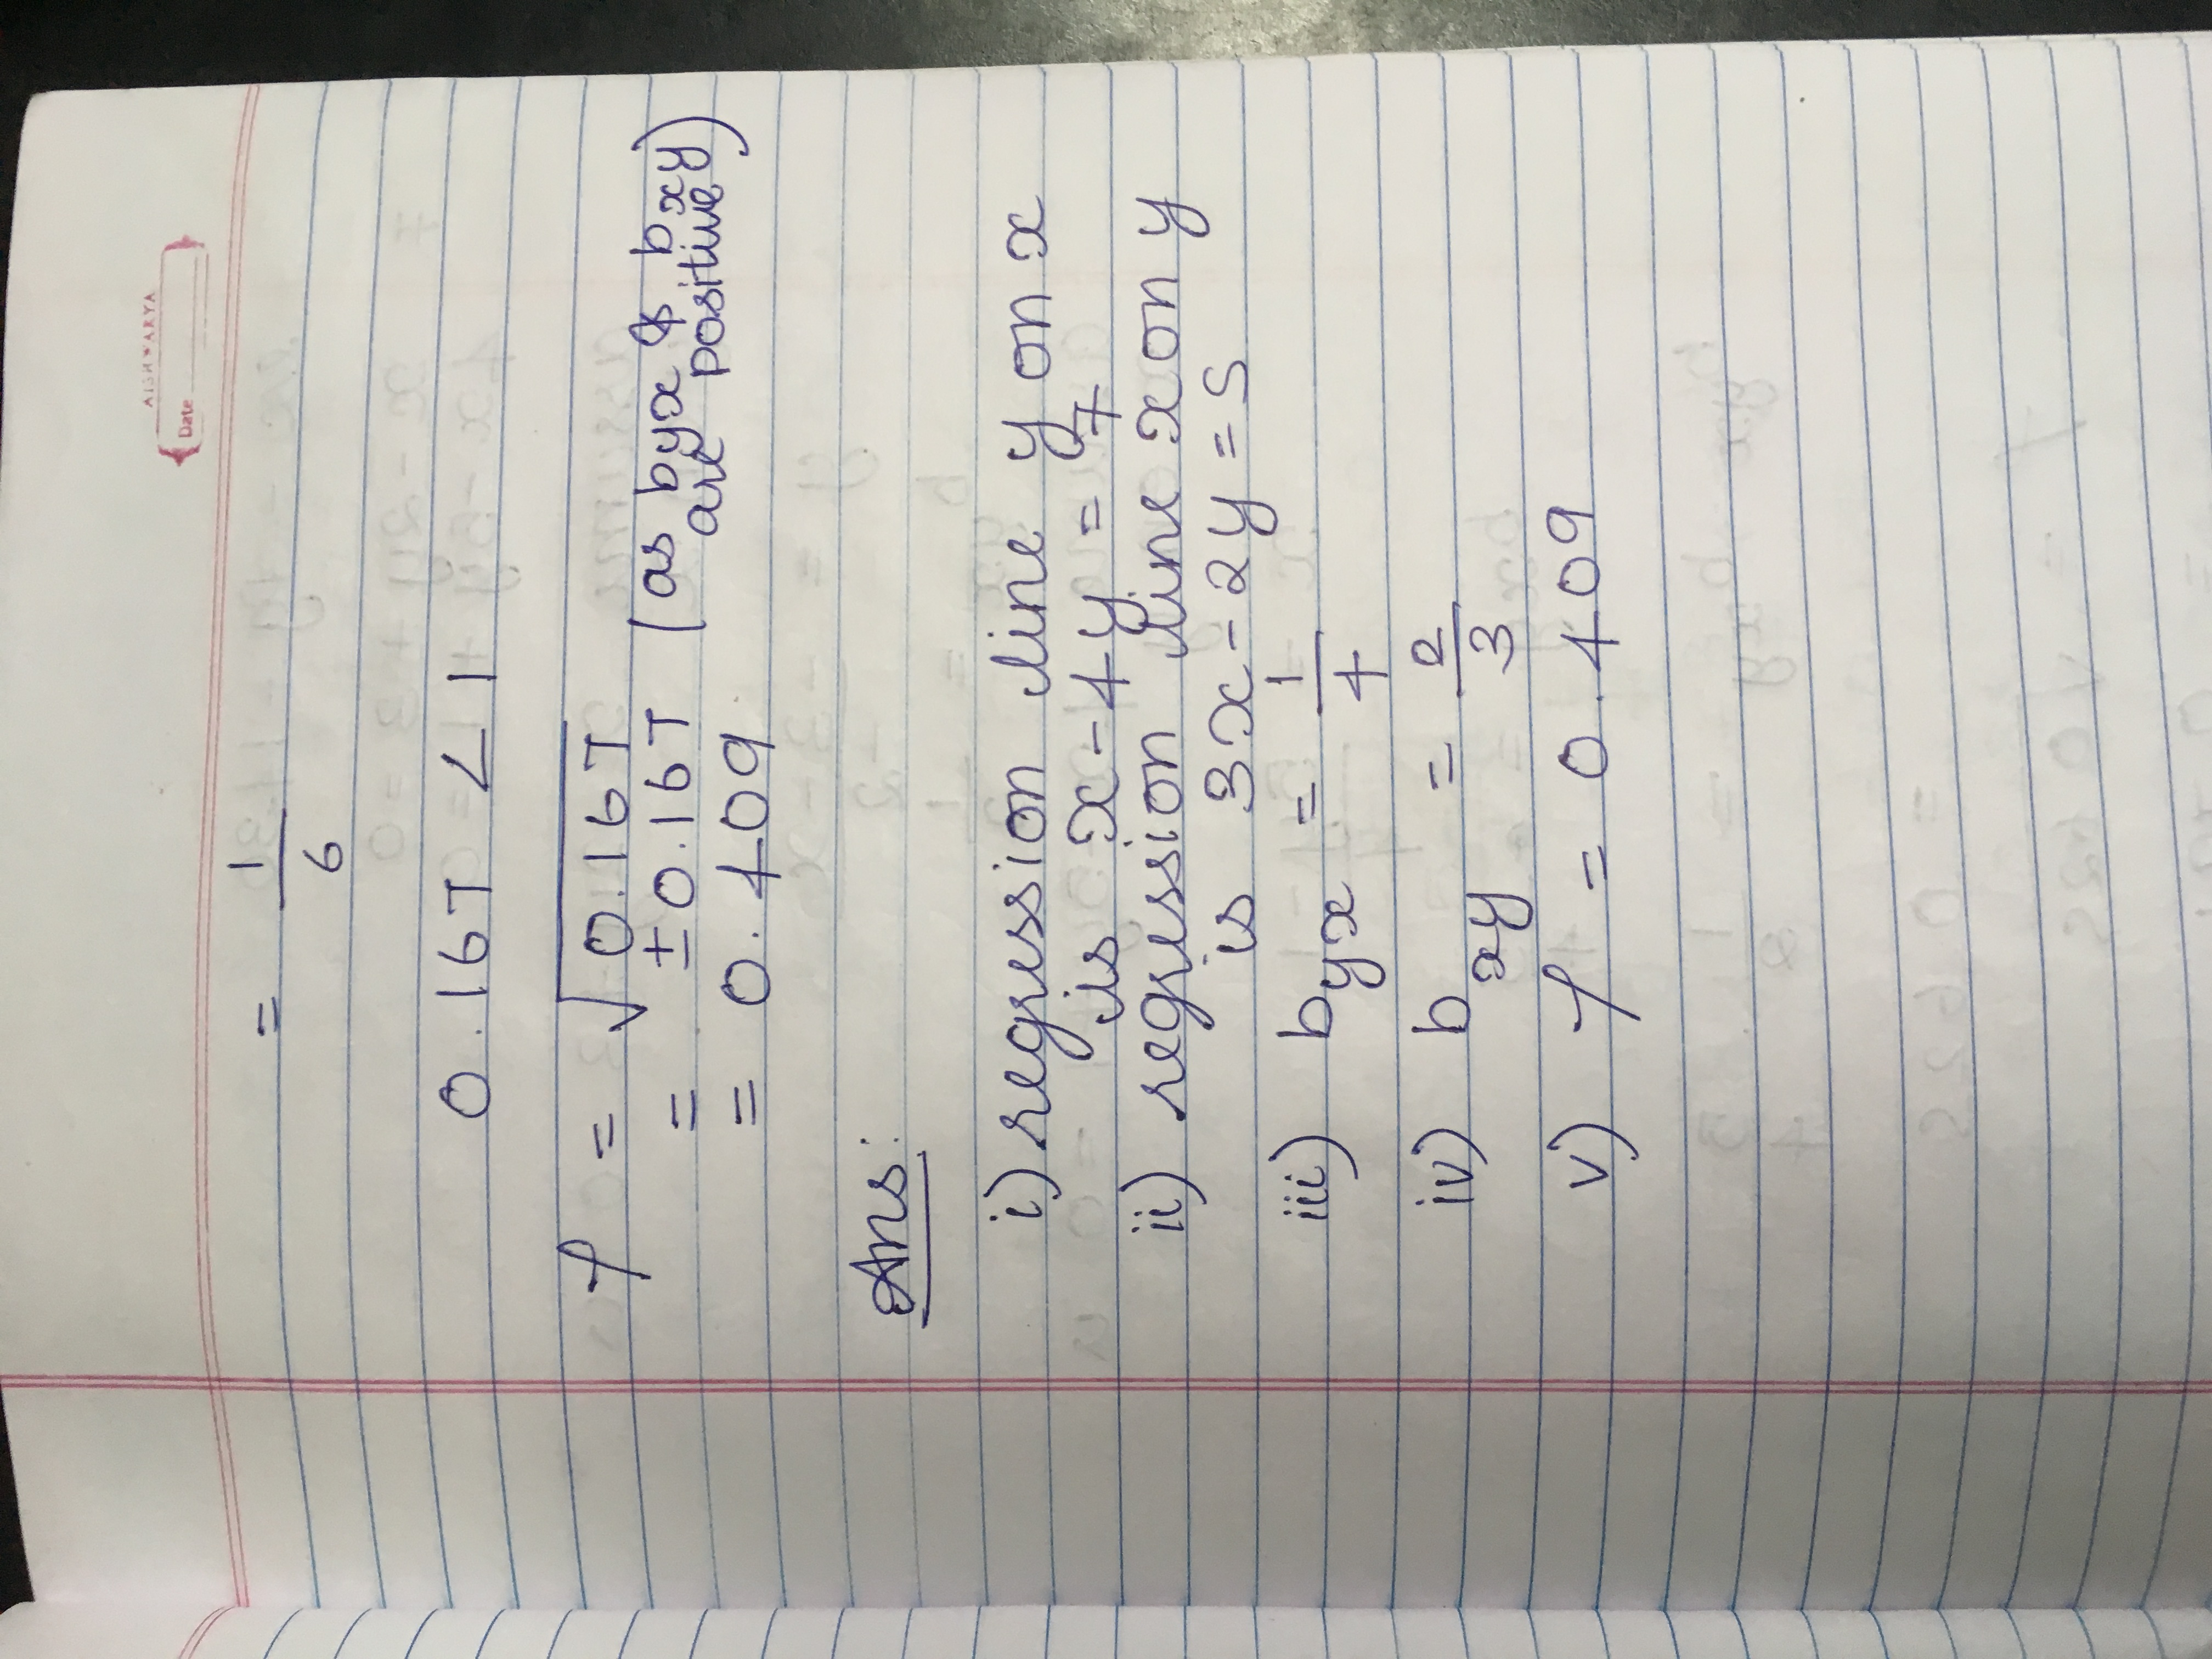 AISHWARYA
Date
= 1/6
0.167 < 1
r = √0.167
= ±0.167 (as byx & bxy are positive)
= 0.409
Ans:
i) regression line y on x
is x - 4y = 7
ii) regression line x on y
is 3x - 2y = 5
iii) byx = 1/4
iv) bxy = 2/3
v) r = 0.409